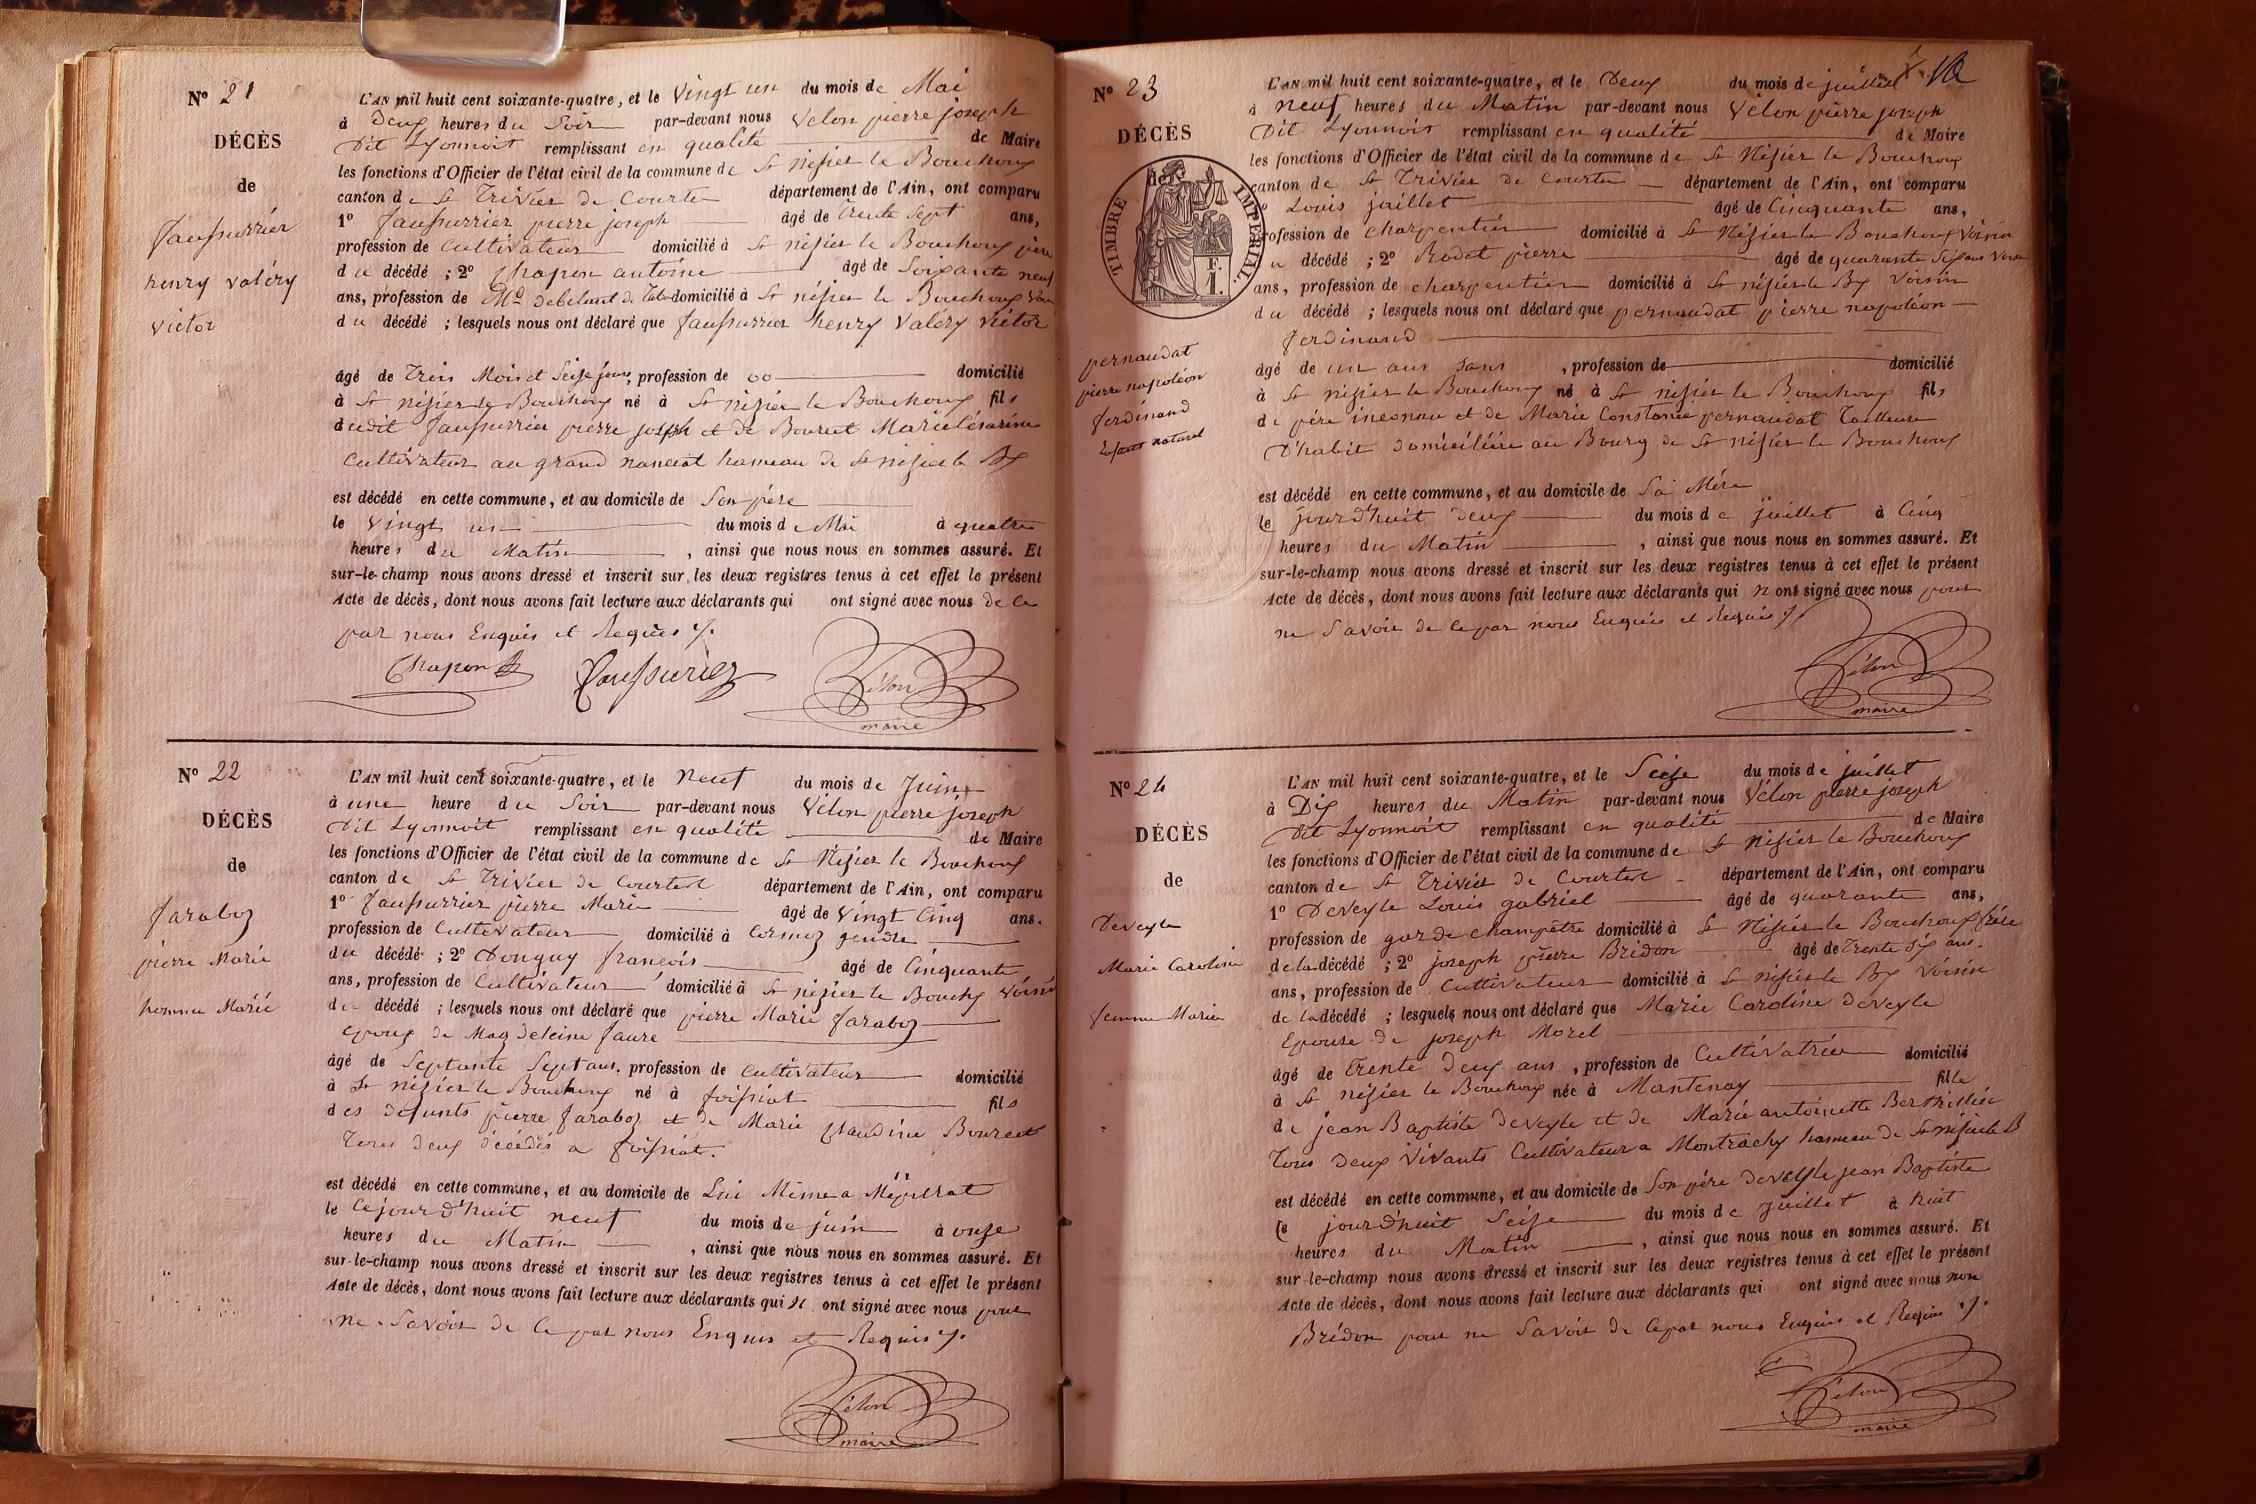 N° 21
DÉCÈS
de
Faussurrier
henry valéry
victor
L'AN mil huit cent soixante-quatre, et le vingt un du mois de Mai
à Deux heures du Soir par-devant nous Vélon pierre joseph
Dit Lyonnoit remplissant en qualité de Maire
les fonctions d'Officier de l'état civil de la commune de St nisier le Bouchoux
canton de St Trivier de Courte département de l'Ain, ont comparu
1° Faussurrier pierre joseph âgé de trente sept ans,
profession de Cultivateur domicilié à St nisier le Bouchoux père
du décédé ; 2° Chapon antoine âgé de Soixante neuf
ans, profession de Md debitant de Tabac domicilié à St nisier le Bouchoux
du décédé ; lesquels nous ont déclaré que faussurrier henry Valéry victor
âgé de Trois Mois et Seise jours, profession de 00 domicilié
à St nisier le Bouchoux né à St nisier le Bouchoux fils
dudit faussurrier pierre joseph et de Bourcet Marie Césarine
Cultivateur au grand nanciat hameau de St nisier le Bx
est décédé en cette commune, et au domicile de Son père
le Vingt un du mois de Mai à quatre
heures du Matin, ainsi que nous nous en sommes assuré. Et
sur-le-champ nous avons dressé et inscrit sur les deux registres tenus à cet effet le présent
Acte de décès, dont nous avons fait lecture aux déclarants qui ont signé avec nous de ce
par nous Enquis et Requis ./.
Chapon Faussuriez Vélon
maire
N° 22
DÉCÈS
de
Faraboz
pierre Marie
homme Marié
L'AN mil huit cent soixante-quatre, et le neuf du mois de Juin
à une heure du Soir par-devant nous Vélon pierre joseph
Dit Lyonnoit remplissant en qualité de Maire
les fonctions d'Officier de l'état civil de la commune de St Nisier le Bouchoux
canton de St Trivier de Courtes département de l'Ain, ont comparu
1° Faussurrier pierre Marie âgé de vingt Cinq ans.
profession de Cultivateur domicilié à Cormoz gendre
du décédé ; 2° Donguy françois âgé de Cinquante
ans, profession de Cultivateur domicilié à St nizier le Bouchx Voisin
du décédé ; lesquels nous ont déclaré que pierre Marie Faraboz
Epoux de Magdeleine Faure
âgé de Septante Sept ans, profession de Cultivateur domicilié
à St nizier le Bouchoux né à foissiat fils
des defunts pierre Faraboz et de Marie Claudine Bourcet
Tous deux décédés a foissiat.
est décédé en cette commune, et au domicile de Lui Même a
le Cejourd'huit neuf du mois de juin à onze
heures du Matin, ainsi que nous nous en sommes assuré. Et
sur-le-champ nous avons dressé et inscrit sur les deux registres tenus à cet effet le présent
Acte de décès, dont nous avons fait lecture aux déclarants qui n ont signé avec nous pour
ne Savoir de Ce par nous Enquis et Requis ./.
Vélon
maire
N° 23
DÉCÈS
de
TIMBRE IMPERIAL.
F.
1.
pernaudat
pierre napoléon
ferdinand
Enfant naturel
L'AN mil huit cent soixante-quatre, et le Deux du mois de juillet
à neuf heures du Matin par-devant nous Vélon pierre joseph
Dit Lyonnois remplissant en qualité de Maire
les fonctions d'Officier de l'état civil de la commune de St Nisier le Bouchoux
canton de St Trivier de Courtes département de l'Ain, ont comparu
Louis jaillet âgé de Cinquante ans,
profession de Charpentier domicilié à St Nisier le Bouchoux Voisin
du décédé ; 2° Rodet pierre âgé de quarante
ans, profession de charpentier domicilié à St nisier le Bx Voisin
du décédé ; lesquels nous ont déclaré que pernaudat pierre napoléon
ferdinand
âgé de un ans, profession de domicilié
à St nisier le Bouchoux né à St nisier le Bouchoux fils
de père inconnu et de Marie Constance pernaudat Tailleuse
D'habit domiciliée au Bourg de St nisier le Bouchoux
est décédé en cette commune, et au domicile de Sa Mére
Le jourd'huit deux du mois de juillet à Cinq
heures du Matin, ainsi que nous nous en sommes assuré. Et
sur-le-champ nous avons dressé et inscrit sur les deux registres tenus à cet effet le présent
Acte de décès, dont nous avons fait lecture aux déclarants qui n ont signé avec nous pour
ne Savoir de Ce par nous Enquis et Requis ./.
Vélon
maire
N° 24
DÉCÈS
de
Deveyle
Marie Caroline
femme Mariée
L'AN mil huit cent soixante-quatre, et le Seize du mois de juillet
à Dix heures du Matin par-devant nous Vélon pierre joseph
Dit Lyonnoit remplissant en qualité de Maire
les fonctions d'Officier de l'état civil de la commune de St Nisier le Bouchoux
canton de St Trivier de Courtes département de l'Ain, ont comparu
1° Deveyle Louis gabriel âgé de quarante ans,
profession de garde champêtre domicilié à St Nisier le Bouchoux frère
de la décédé ; 2° joseph pierre Bridon âgé de Trente six ans.
ans, profession de Cultivateur domicilié à St nisier le Bx Voisin
de la décédé ; lesquels nous ont déclaré que Marie Caroline deveyle
Epouse de joseph Morel
âgé de Trente Deux ans, profession de Cultivatrice domicilié
à St nisier le Bouchoux née à Mantenay fille
de jean Baptiste deveyle et de Marie antoinette Berthillier
Tous Deux Vivants Cultivateur a Montrachy hameau de St nisier le B
est décédé en cette commune, et au domicile de Son père deveyle jean Baptiste
Le jourd'huit Seize du mois de juillet à huit
heures du Matin, ainsi que nous nous en sommes assuré. Et
sur-le-champ nous avons dressé et inscrit sur les deux registres tenus à cet effet le présent
Acte de décès, dont nous avons fait lecture aux déclarants qui ont signé avec nous non
Brédon pour ne Savoir de Ce par nous Enquis et Requis ./.
Vélon
maire